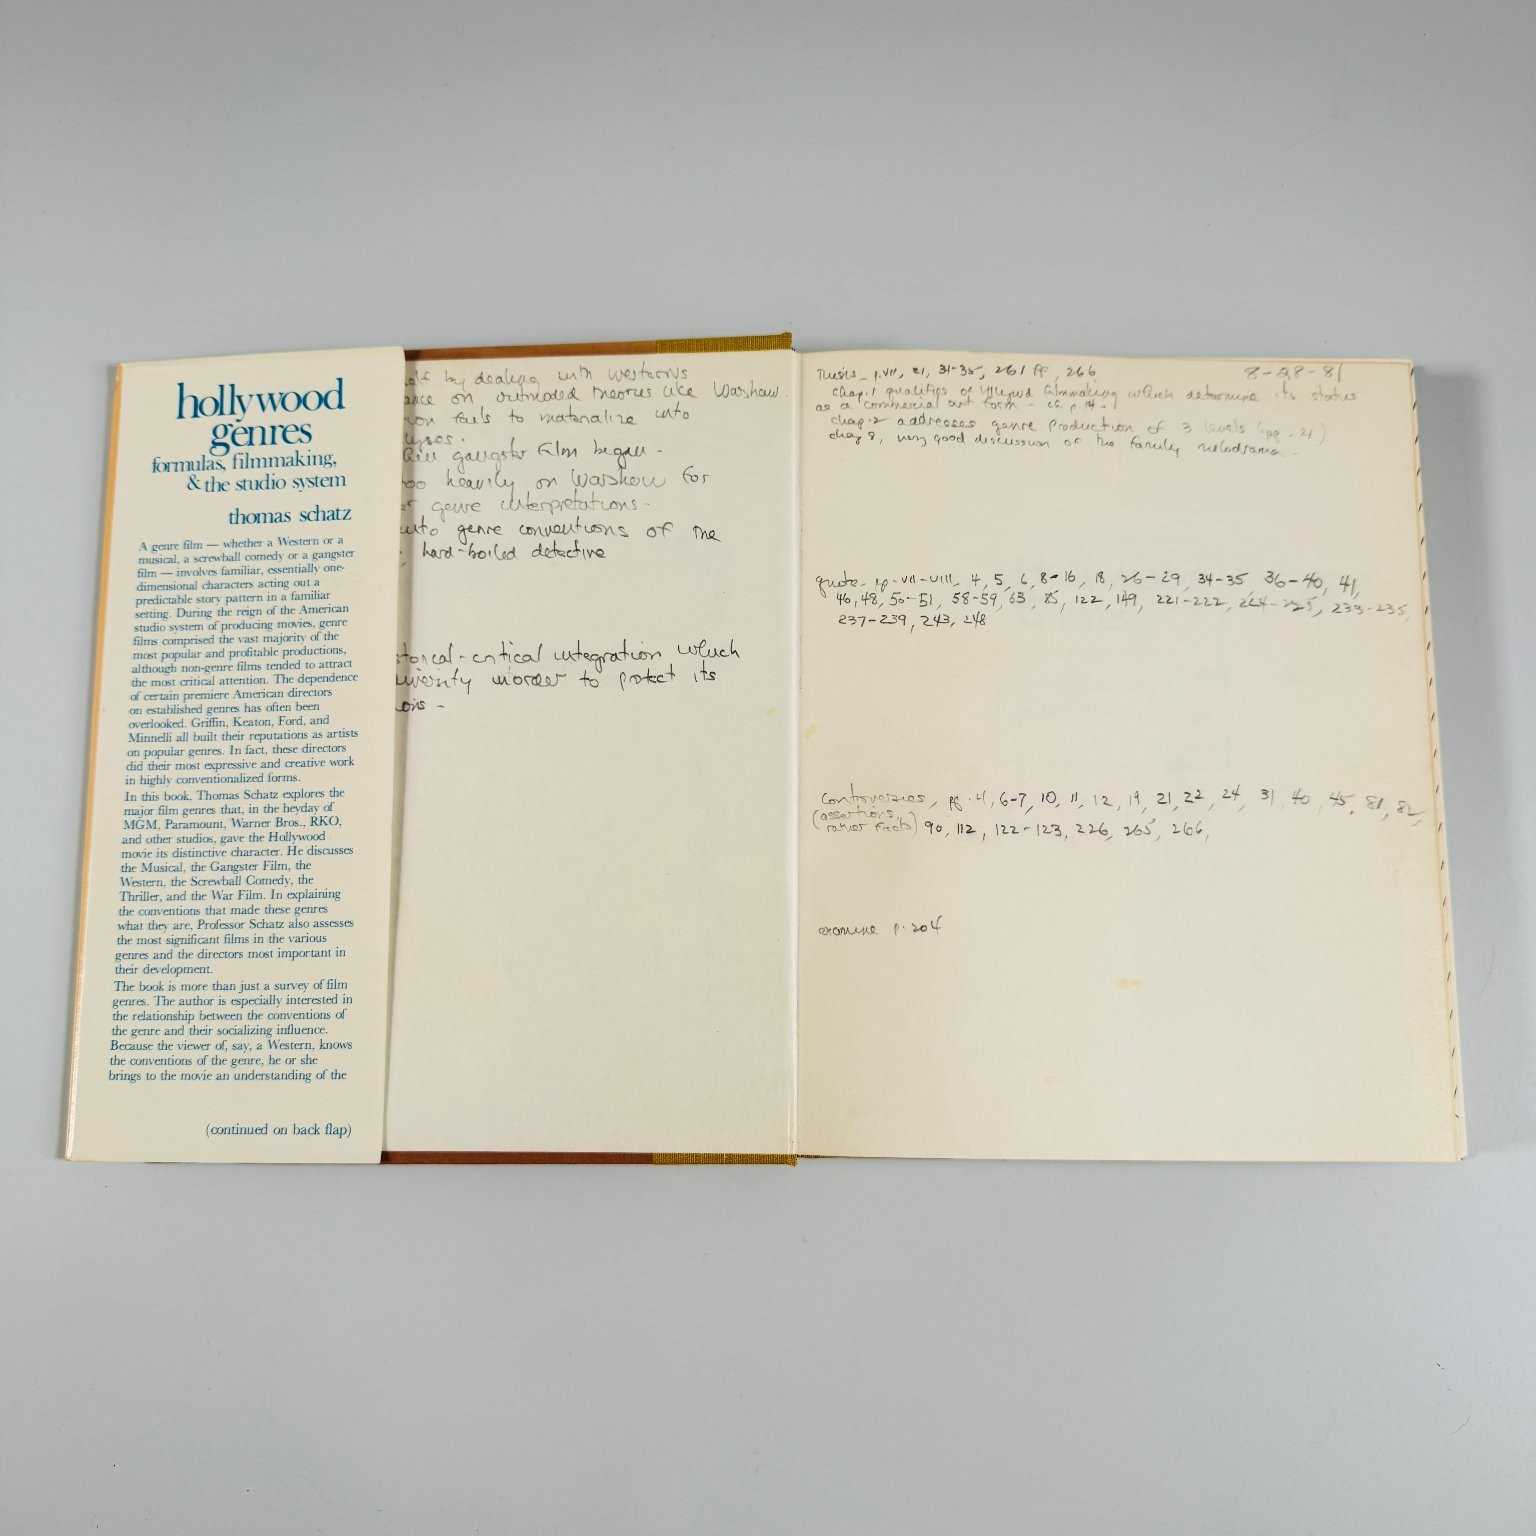 hollywood
genres
formulas, filmmaking,
& the studio system
thomas schatz
A genre film — whether a Western or a
musical, a screwball comedy or a gangster
film — involves familiar, essentially one-
dimensional characters acting out a
predictable story pattern in a familiar
setting. During the reign of the American
studio system of producing movies, genre
films comprised the vast majority of the
most popular and profitable productions,
although non-genre films tended to attract
the most critical attention. The dependence
of certain premiere American directors
on established genres has often been
overlooked. Griffin, Keaton, Ford, and
Minnelli all built their reputations as artists
on popular genres. In fact, these directors
did their most expressive and creative work
in highly conventionalized forms.
In this book, Thomas Schatz explores the
major film genres that, in the heyday of
MGM, Paramount, Warner Bros., RKO,
and other studios, gave the Hollywood
movie its distinctive character. He discusses
the Musical, the Gangster Film, the
Western, the Screwball Comedy, the
Thriller, and the War Film. In explaining
the conventions that made these genres
what they are, Professor Schatz also assesses
the most significant films in the various
genres and the directors most important in
their development.
The book is more than just a survey of film
genres. The author is especially interested in
the relationship between the conventions of
the genre and their socializing influence.
Because the viewer of, say, a Western, knows
the conventions of the genre, he or she
brings to the movie an understanding of the
(continued on back flap)
by dealing with westerns
on outmoded theories like Warshaw.
fails to materialize into
gangster film began.
heavily on Warshow for
genre interpretations.
into genre conventions of the
hard-boiled detective
storical-critical integration which
in order to protect its
8-28-81
Thesis - p. VII, 21, 31-35, 261 ff, 266
chap. 1 qualities of Hllywd filmmaking which determine its status
as a commercial art form - cf. p. 14.
chap. 2 addresses genre production of 3 levels (pg. 21)
chap 8, very good discussion of the family melodrama.
quote - pp. VII-VIII, 4, 5, 6, 8-16, 18, 26-29, 34-35 36-40, 41,
46, 48, 50-51, 58-59, 63, 85, 122, 149, 221-222, 224-225, 233-235,
237-239, 243, 248
controversies, pg. 4, 6-7, 10, 11, 12, 19, 21, 22, 24, 31, 40, 45, 81, 82,
(assertions,
rather facts) 90, 112, 122-123, 226, 265, 266,
examine p. 204